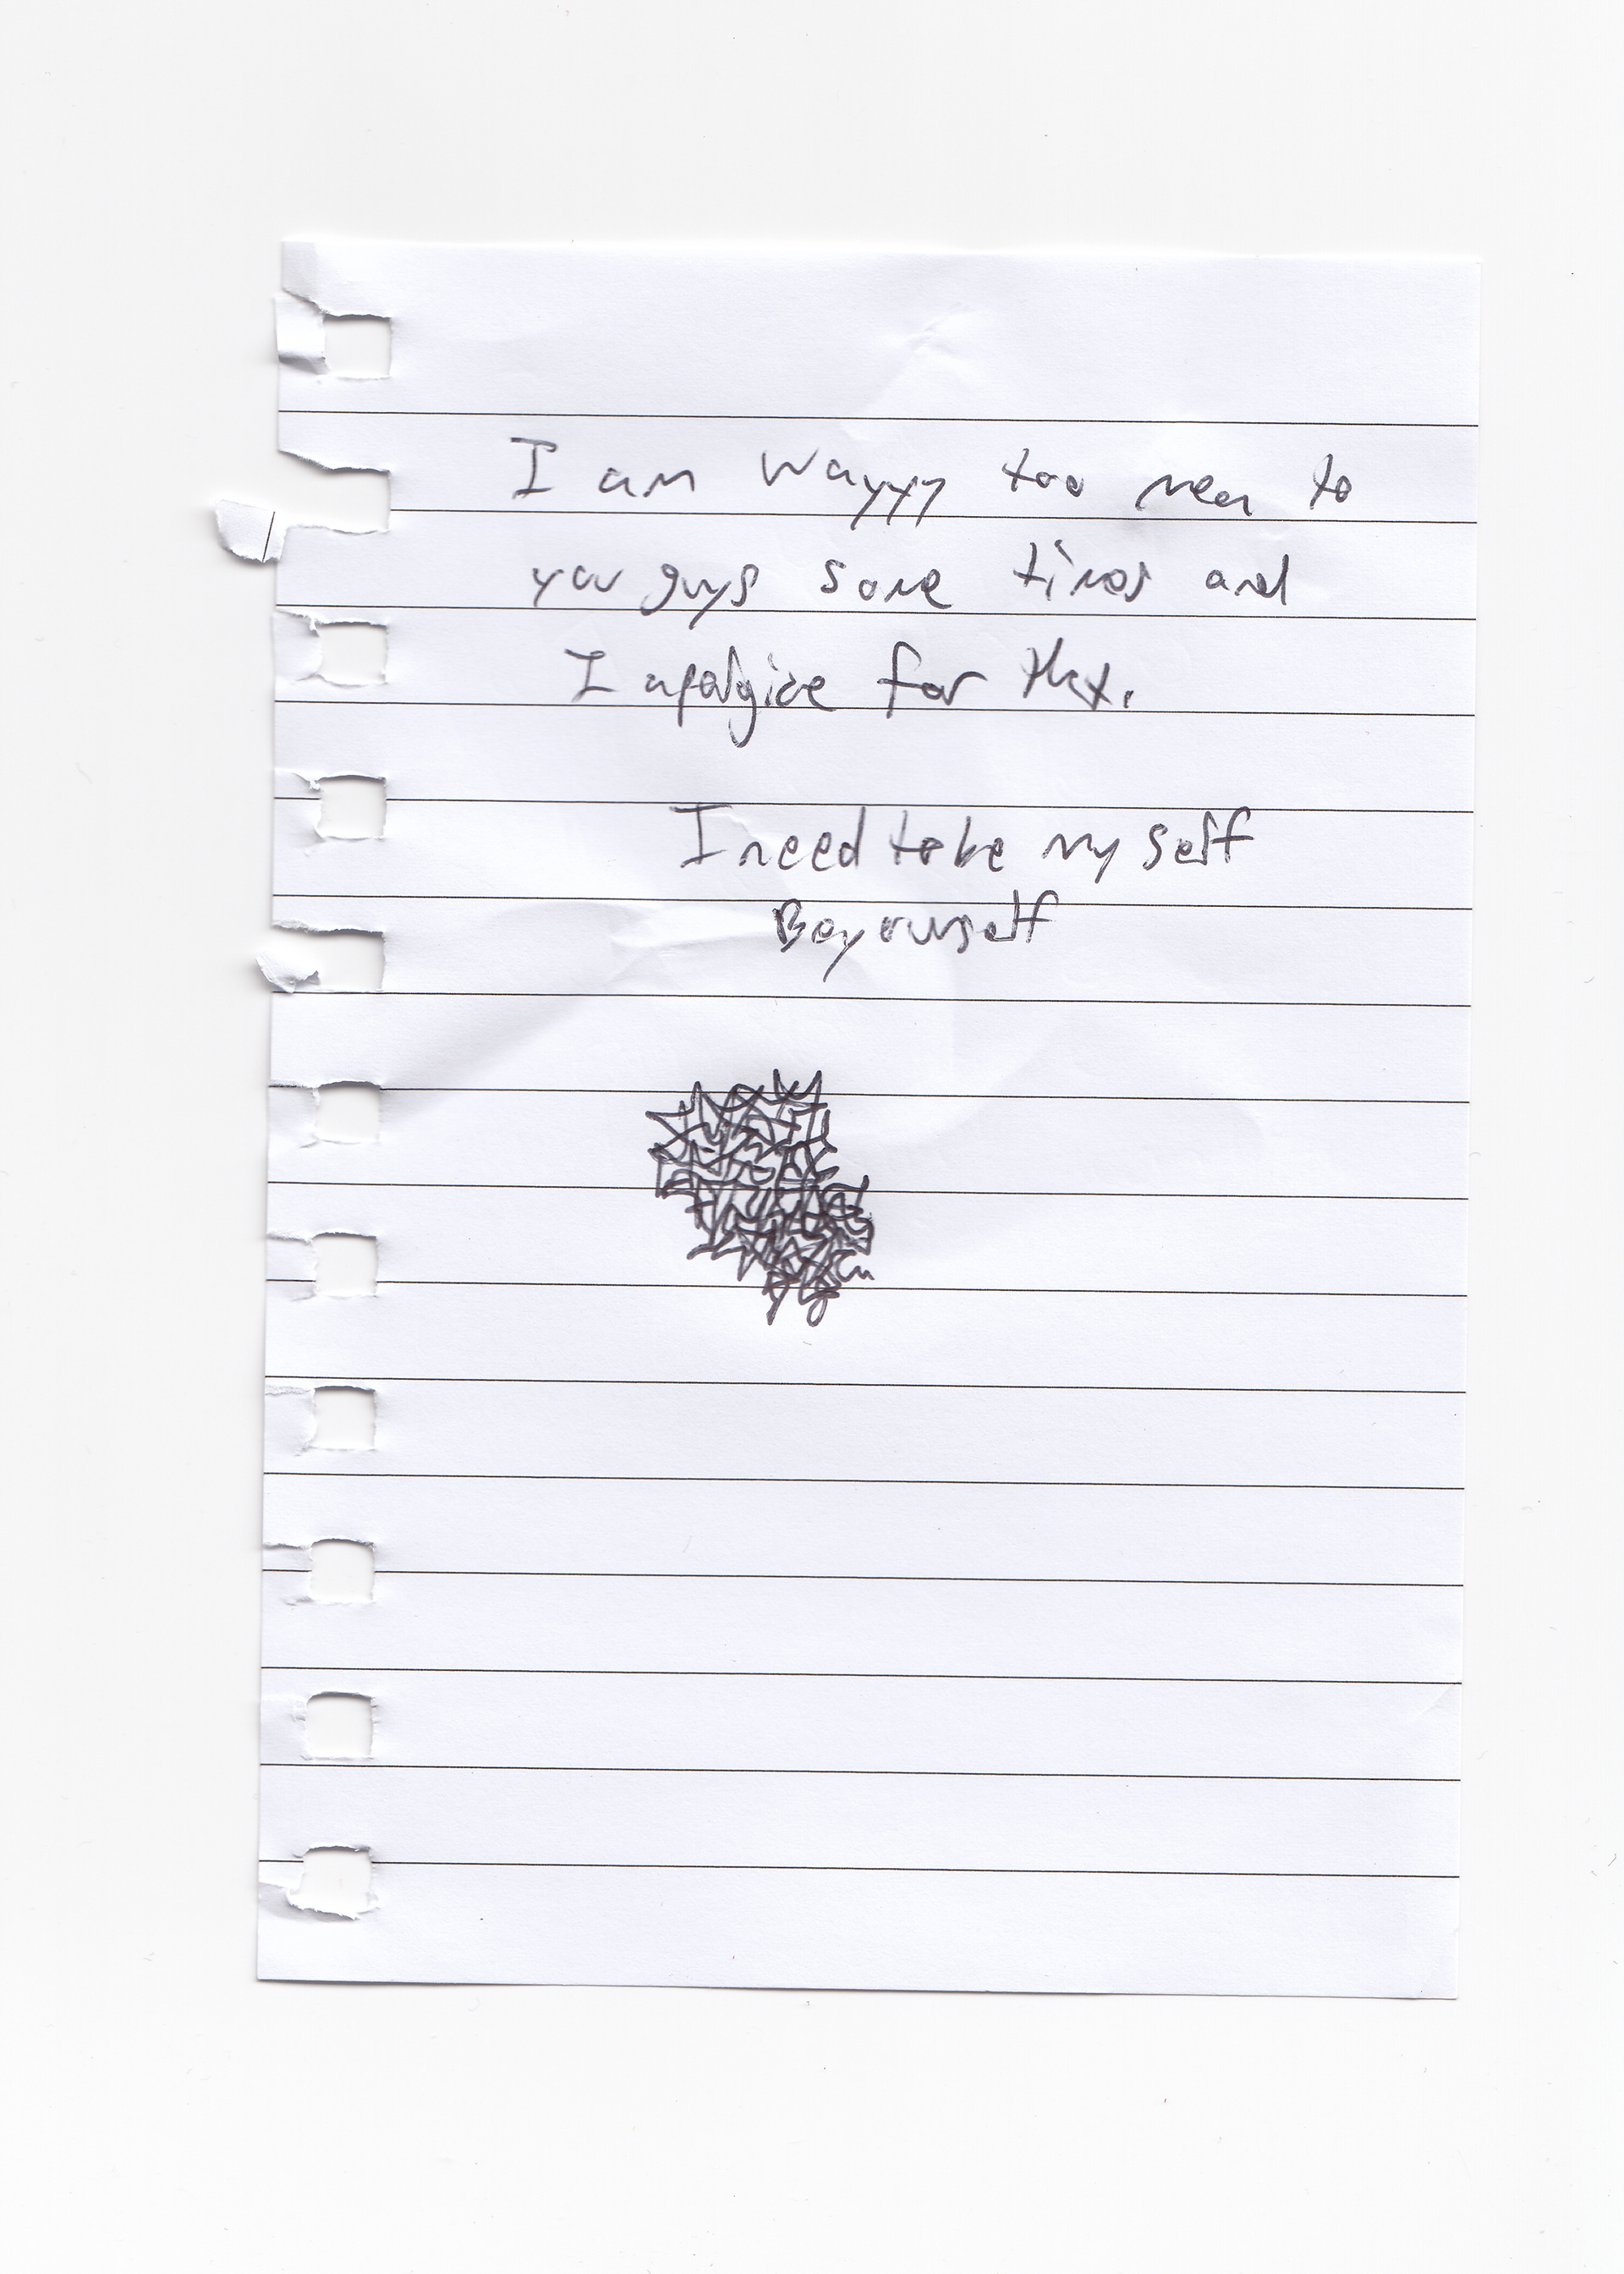 I am wayyy too mean to
you guys some times and
I apolgice for that.
I need to be my self
Be yourself